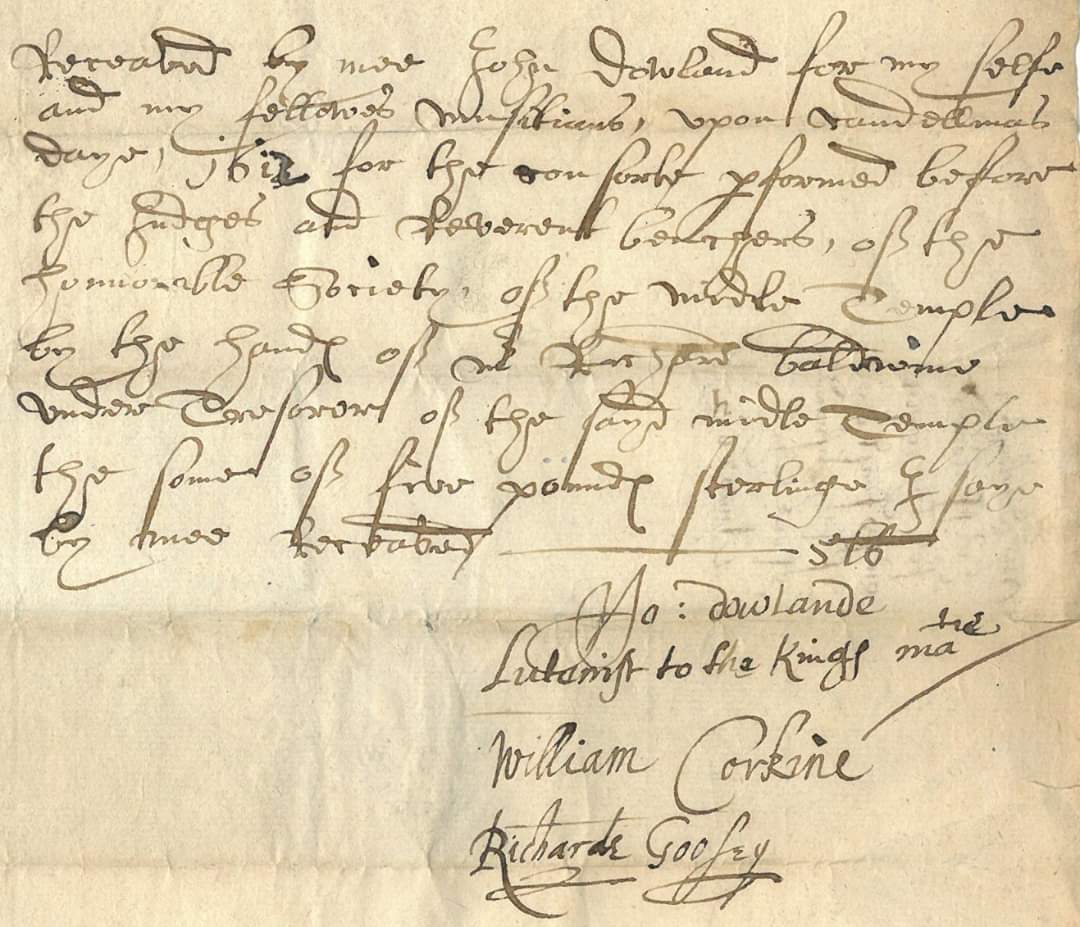 Receaved by mee John Dowland for my selfe
and my fellowes musitians, vpon Candellmas
daye, 1612 for the consorte pformed before
the Judges and Reverent benchers, of the
honnorable Society, of the midle Temple
by the handes of mr Richard baldwine
vnder Tresorer of the sayd midle Temple
the some of five poundes sterlinge I saye
by mee Receaved 5lb
Jo: dowlande
Lutenist to the Kings matie
William Corkine
Richarde Goosey